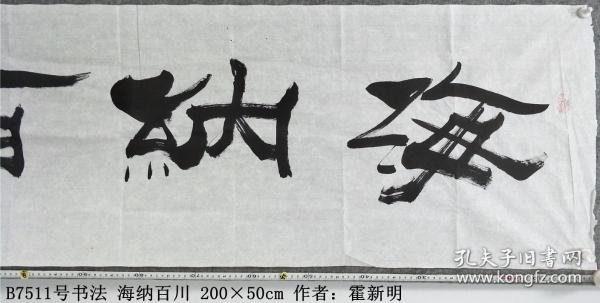 海納百
孔夫子旧书网
www.kongfz.com
B7511号书法 海纳百川 200×50cm 作者：霍新明